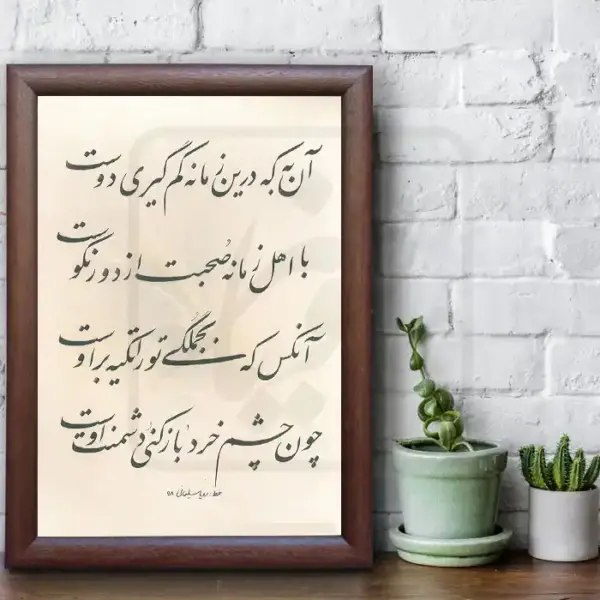 آن به که درین زمانه کم گیری دوست
با اهل زمانه صُحبت از دور نکوست
آنکس که بجُملگی تو را تکیه بر اوست
چون چشم خرد باز کنی دشمنت اوست
خط: رویا سلیمانی ۹۸